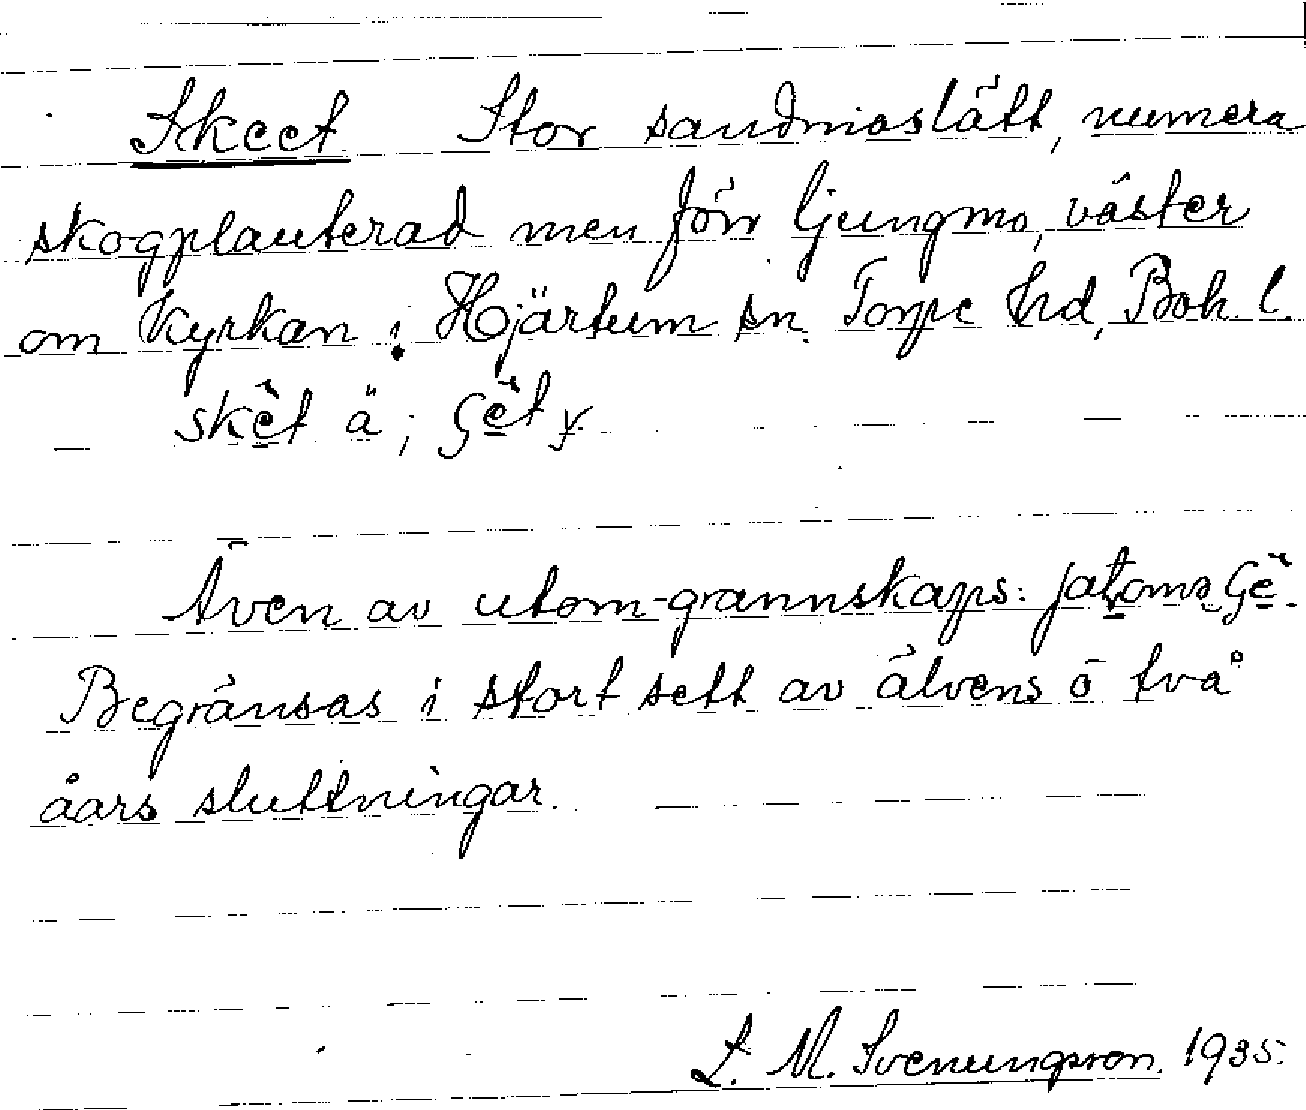 Skeet Stor sandmoslätt, numera
skogplanterad men förr ljungmo, väster
om kyrkan i Hjärtum sn. Torpe hd, Boh. l.
skēt ä; ʃēt y.
Även av utom-grannskaps:
Begränsas i stort sett av älvens o två
åars sluttningar.
L. M. Svenungsson. 1935.